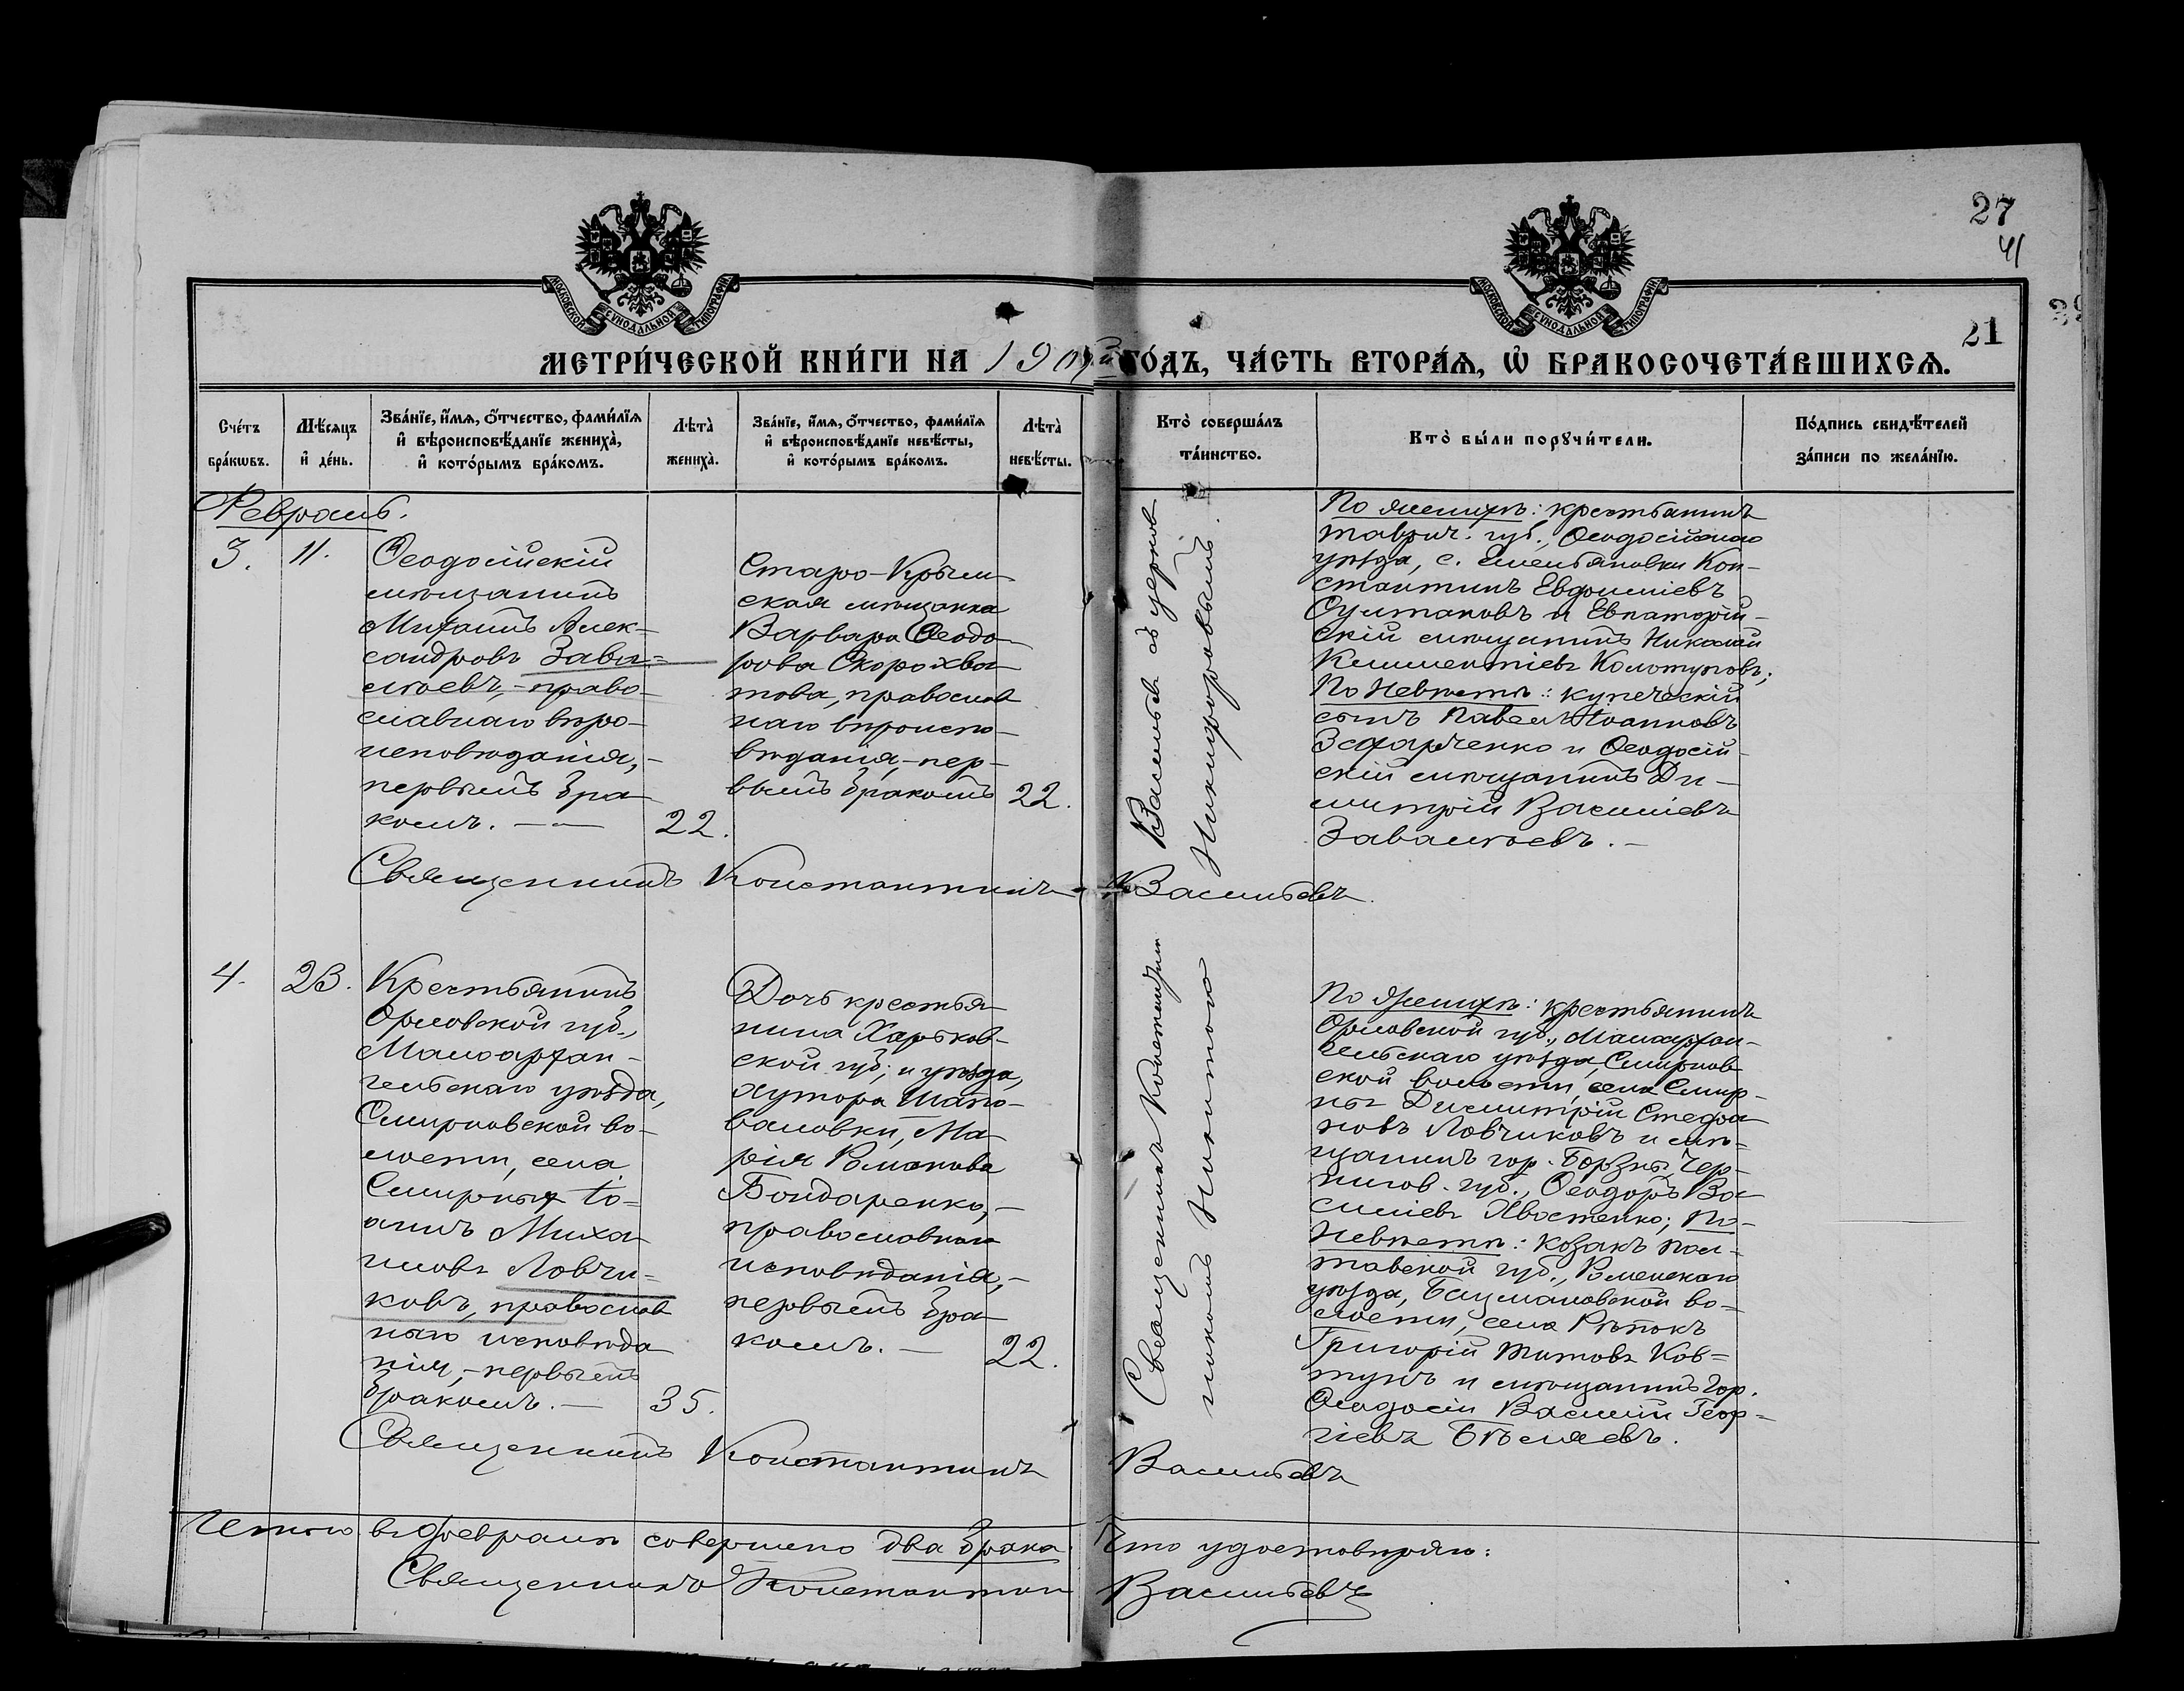 27
41
21
МОСКОВСКОЙ СУНОДАЛЬНОЙ ТИПОГРАФИИ
МОСКОВСКОЙ СУНОДАЛЬНОЙ ТИПОГРАФИИ
МЕТРИ́ЧЕСКОЙ КНИ́ГИ НА 190 ГО́ДЪ, ЧА́СТЬ ВТОРА́Ѧ, Ѽ БРАКОСОЧЕТА́ВШИХСѦ.
Сче́тъ
бра́кѡвъ.
Мѣ́сяцъ
и҆ де́нь.
Зва́нїе, и҆́мѧ, ѻ҆́тчество, фами́лїѧ
и҆ вѣроисповѣ́данїе жениха̀,
и҆ кото́рымъ бра́комъ.
Лѣта̀
жениха̀.
Зва́нїе, и҆́мѧ, ѻ҆́тчество, фами́лїѧ
и҆ вѣроисповѣ́данїе невѣ́сты,
и҆ кото́рымъ бра́комъ.
Лѣта̀
невѣ́сты.
Кто̀ соверша́лъ
та́инство.
Кто̀ бы́ли порꙋчи́тели.
По́дпись свидѣ́телей
за́писи по жела́нїю.
Февраль.
3.
11.
Ѳеодосійскій
мѣщанинъ
Михаилъ Алек=
сандровъ Зава=
лѣевъ,- право-
славнаго вѣро-
исповѣданія,-
первымъ бра
комъ. —
22.
Старо-Крым
ская мѣщанка
Варвара Ѳеодо
рова Скорохва
това, православ
наго вѣроиспо-
вѣданія,-пер-
вымъ бракомъ
22.
Васильев съ церков
Никифоровымъ.
По женихѣ: крестьянинъ
Таврич. губ., Ѳеодосійскаго
уѣзда, с. Емельяновки Кон-
стантинъ Евфиміевъ
Султановъ и Евпаторій-
скій мѣщанинъ Николай
Климентіевъ Колотуповъ;
По невѣстѣ: купеческій
сынъ Павелъ Іоанновъ
Захарченко и Ѳеодосій-
скій мѣщанинъ Ди-
митрій Васильевъ
Завалѣевъ. —
Священникъ Константинъ Васильевъ.
4.
23.
Крестьянинъ
Орловской губ.,
Малоархан-
гельскаго уѣзда,
Смирновской во-
лости, села
Смирныхъ Іо=
аннъ Миха
иловъ Ловчи=
ковъ, православ
наго исповѣда
нія,- первымъ
бракомъ. —
35.
Дочь крестья
нина Харьков-
ской губ., и уѣзда,
хутора Шапо-
валовки, Ма
рія Романова
Бондаренко,-
православнаго
исповѣданія,-
первымъ бра
комъ. —
22.
Священникъ Константин
По женихѣ: крестьянинъ
Орловской губ., Малоархан-
гельскаго уѣзда, Смирнов
ской волости, села Смир-
ныхъ Димитрій Стефа
новъ Ловчиковъ и мѣ-
щанинъ гор. Борзны, Чер-
нигов. губ., Ѳеодоръ Ва
силіевъ Хвостенко; По
невѣстѣ: козакъ Пол-
тавской губ., Роменскаго
уѣзда, Бацмановской во-
лости, села Рѣпокъ
Григорій Титовъ Ков=
тунъ и мѣщанинъ гор.
Ѳеодосіи Василій Геор=
гіевъ Бѣляевъ.
Священникъ Константинъ Васильевъ
Итого въ февралѣ совершено два брака. Что удостовѣряю:
Священникъ Константин Васильевъ